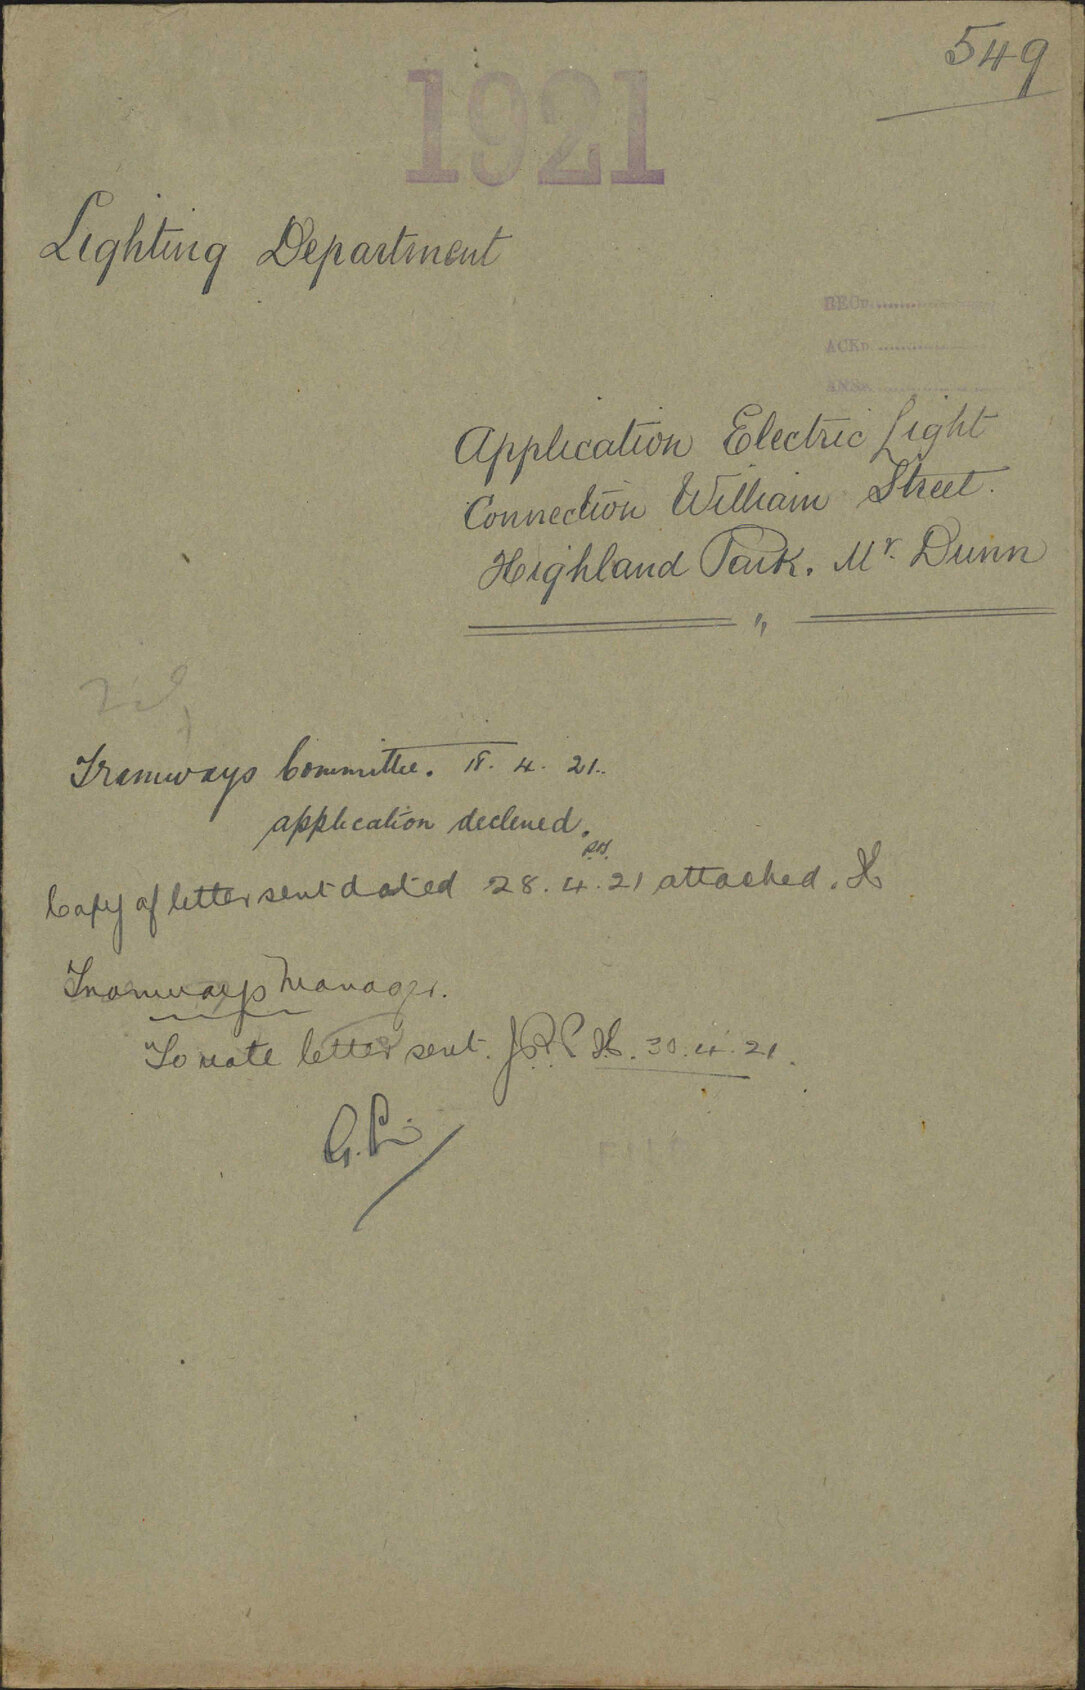 549
1921
Lighting Department
RECD
ACKD
ANSD
Application Electric Light
Connection William Street.
Highland Park. Mr. Dunn
"
Tramways Committee. 18. 4. 21.
application declined.
Copy of letter sent dated 28. 4. 21 attached. H
Tramways Manager.
To note letter sent. 30. 4. 21.